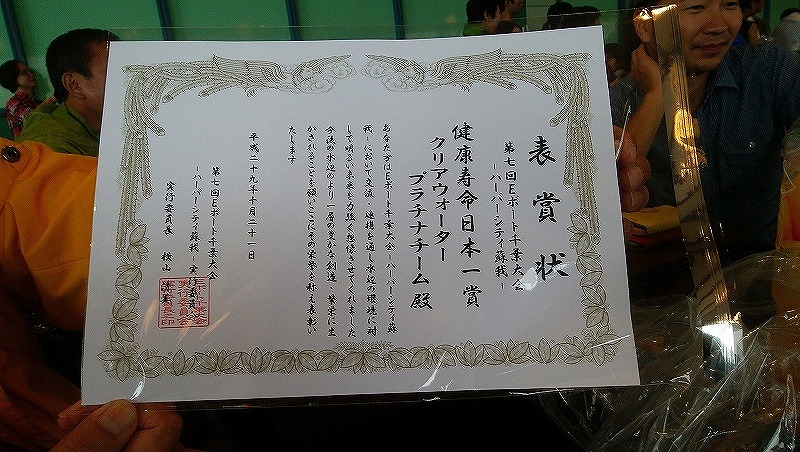 表賞状
第七回Eボート千葉大会
-ハーバーシティ蘇我-
健康寿命日本一賞
クリアウォーター
プラチナチーム殿
あなた方はEボート千葉大会-ハーバーシティ蘇
我-において交流・連携を通し水辺の環境に対
して明るい未来を力強く発信させてくれました
今後の水辺のより一層の豊かな創造・繁栄に生
かされることを願いここにその栄誉を称え表彰い
たします
平成二十九年十月二十一日
第七回Eボート千葉大会
-ハーバーシティ蘇我-実行委員会
実行委員長 横山